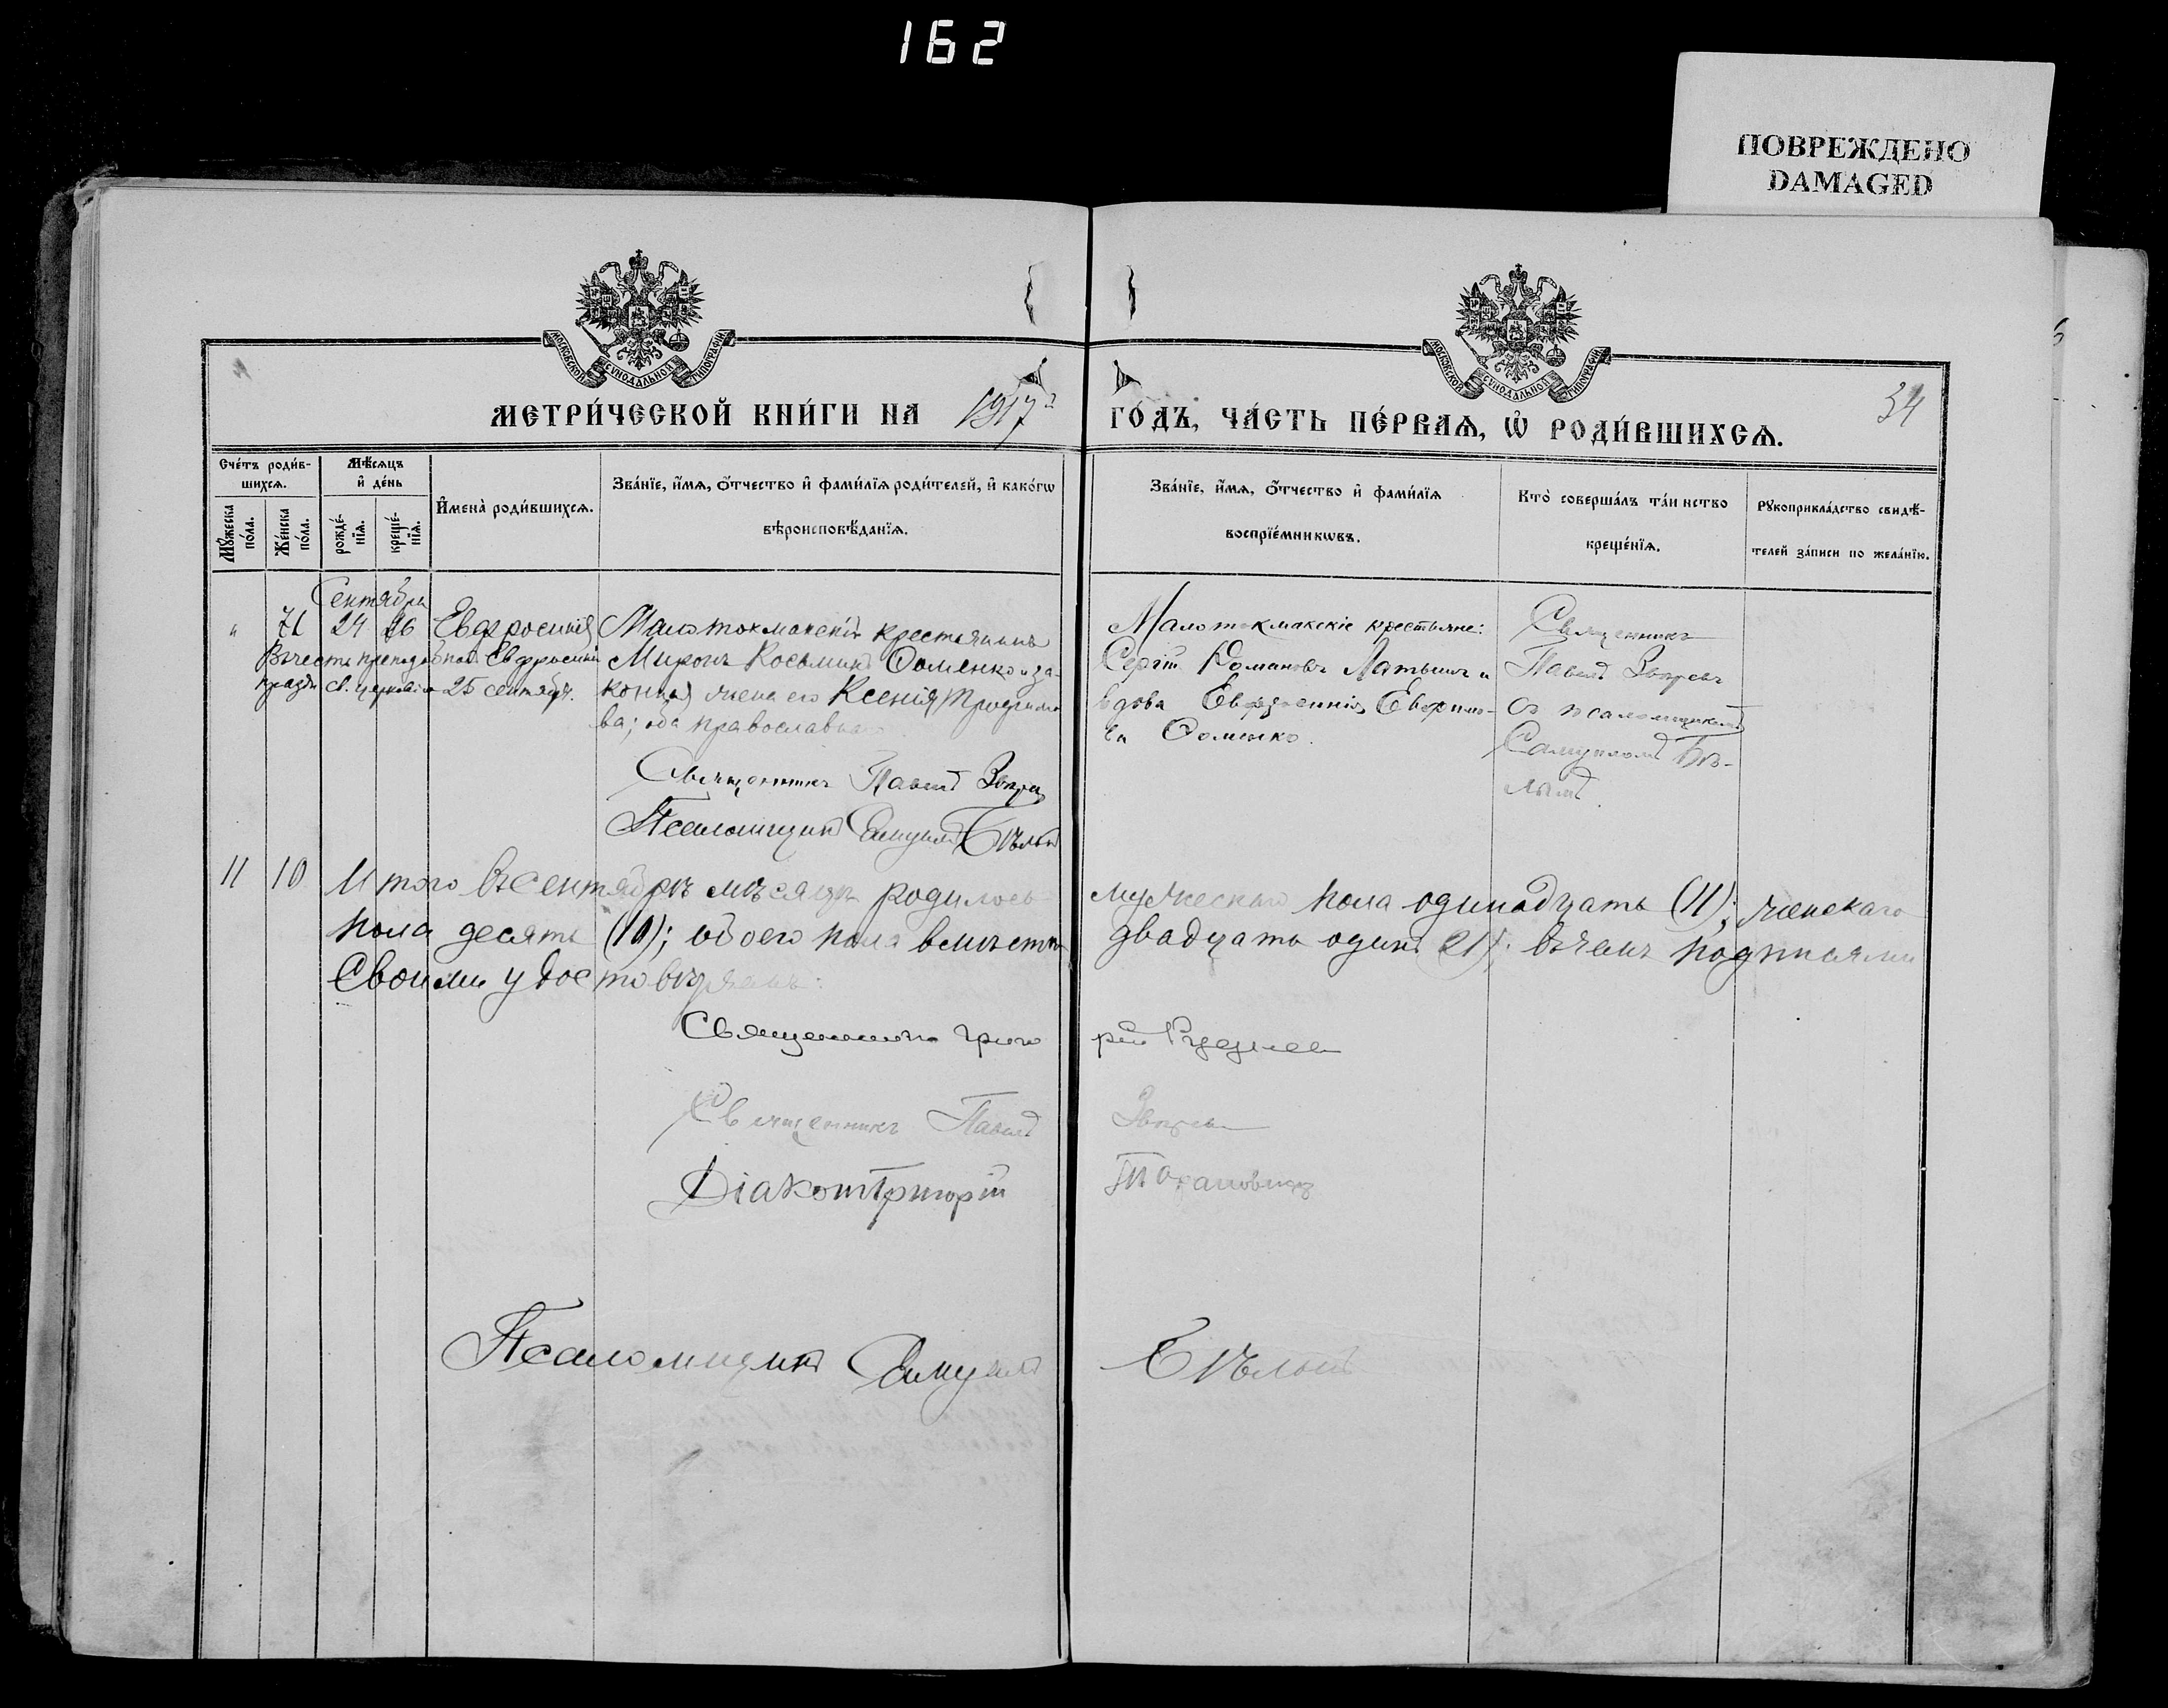 162
ПОВРЕЖДЕНО
DAMAGED
МОСКОВСКОЙ СѴНОДАЛЬНОЙ ТИПОГРАФІИ
МОСКОВСКОЙ СѴНОДАЛЬНОЙ ТИПОГРАФІИ
МЕТРИ́ЧЕСКОЙ КНИ́ГИ НА 1917 ГО́ДЪ, ЧА́СТЬ ПЕ́РВАѦ, Ѡ҆ РОДИ́ВШИХСѦ.
34
Сче́тъ роди́в-
шихсѧ.
Мꙋ́жеска по́ла.
Же́нска по́ла.
Мѣ́сѧцъ
и҆ де́нь
рожде́-
нїѧ.
креще́-
нїѧ.
И҆мена̀ роди́вшихсѧ.
Зва́нїе, и҆́мѧ, ѻ҆́тчество и҆ фами́лїѧ роди́телей, и҆ како́гѡ
вѣроисповѣ́данїѧ.
Зва́нїе, и҆́мѧ, ѻ҆́тчество и҆ фами́лїѧ
воспрїе́мникѡвъ.
Кто̀ соверша́лъ та́инство
креще́нїѧ.
Рꙋкоприкла́дство свидѣ́-
телей за́писи по жела́нїю.
Сентября
" 71 24 26 Евфросинія
Въ честь преподобной Евфросиніи
празд. св. церковію 25 сентябр.
Малотокмакскій крестьянинъ
Миронъ Косьминъ Фоменко и за-
конная жена его Ксенія Трофимо
ва; оба православные.
Священникъ Павелъ
Псаломщикъ Самуилъ Бѣлый
Малотокмакскіе крестьяне:
Сергій Романовъ Латышъ и
вдова Евфросинія Ефимо-
ва Фоменко.
Священникъ
Павелъ
съ псаломщикомъ
Самуиломъ Бѣ-
лымъ.
11 10 Итого въ сентябрѣ мѣсяцѣ родилось мужескаго пола одинадцать (11); женскаго
пола десять (10); обоего пола вмѣстѣ двадцать одинъ (21); въ чемъ подписями
своими удостовѣряемъ:
Священникъ Григорій Руднев
Священникъ Павелъ
Діаконъ Григорій
Псаломщикъ Самуилъ Бѣлый